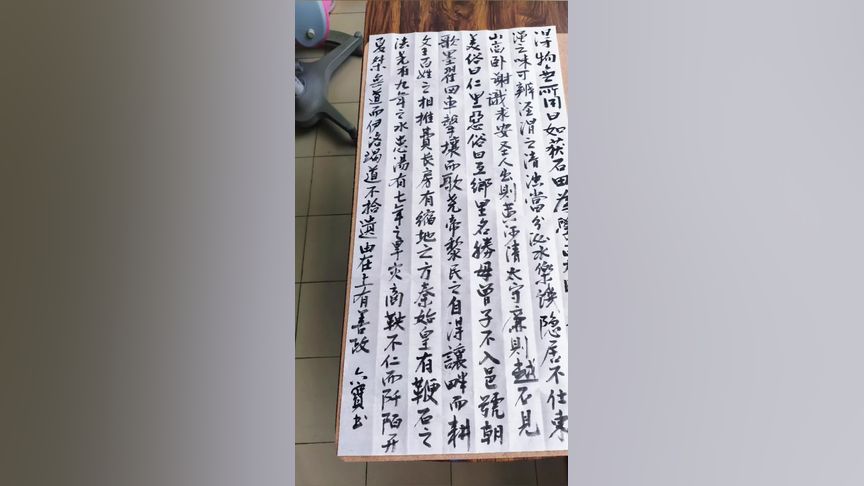 淂物無所用曰如获石田為學
渑之味可辨泾渭之清浊當分泌水樂饑隐居不仕東
山高卧谢職求安圣人出則黄河清太守廉則越石見
美俗曰仁里惡俗曰互鄉里名勝母曾子不入邑號朝
歌墨翟回車擊壤而歌尧帝黎民之自淂讓畔而耕
文王百姓之相推費长房有缩地之方秦始皇有鞭石之
法尧有九年之水患湯有七年之旱灾商鞅不仁而阡陌开
夏桀無道而伊洛竭道不拾遗由在上有善政 六寶书